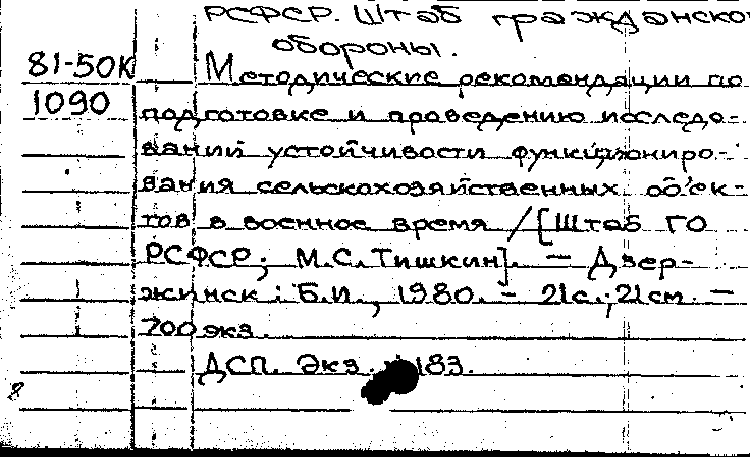 РСФСР. Штаб гражданской
обороны.
81-50К Методические рекомендации по
1090 подготовке и проведению исследо-
ваний устойчивости функциониро-
вания сельскохозяйственных объек-
тов в военное время / [Штаб ГО
РСФСР; М.С. Тишкин]. — Дзер-
жинск: Б.И., 1980. - 21с.; 21см. —
700 экз.
ДСП. Экз. 183.
8